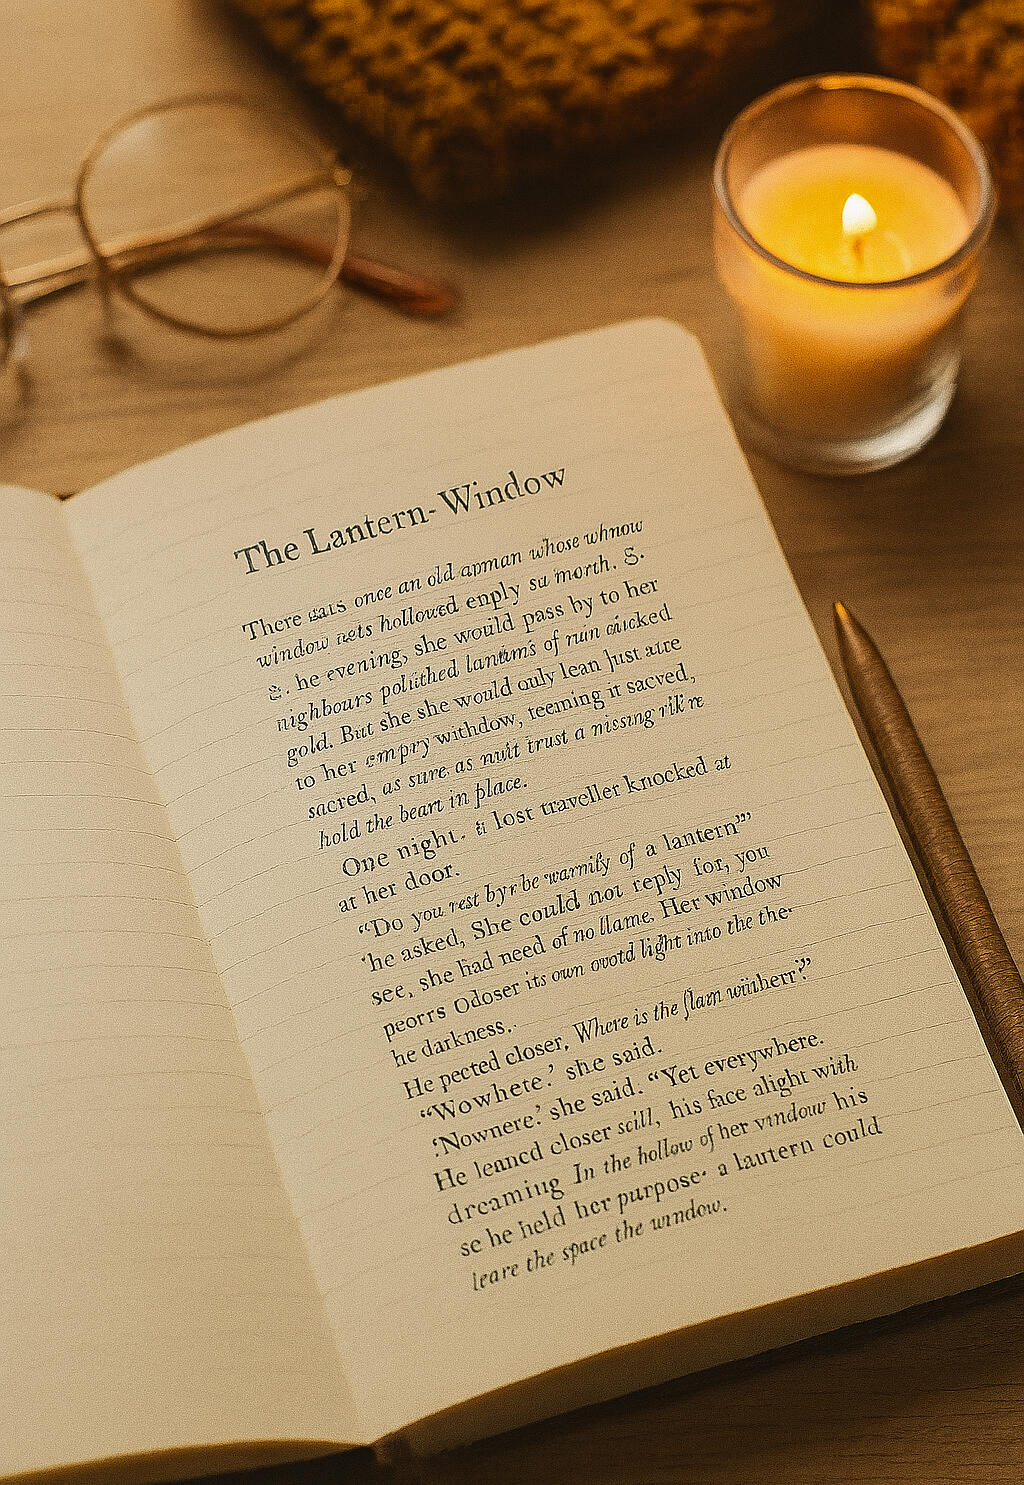 The Lantern-Window
There once an old apman whose whnow
window hollowed enply su morth. S.
he evening, she would pass by to her
nighbours polithed of ruin
gold. But she she would only lean just
to her empry withdow, teeming it sacred,
sacred, as sure as nuit trust a nissing
hold the beart in place.
One night. lost traveller knocked at
at her door.
“Do you rest of a lantern”’
he asked, She could not reply for, you
see, she had need of no llame. Her window
peorrs Odoser its own ovotd light into the the·
he darkness.
He pected closer, Where is the flam
“Wowhete.’ she said.
‘Nownere.’ she said. “Yet everywhere.
He leancd closer scill, his face alight with
dreaming In the hollow of her vindouv his
se he held her purpose· a lautern could
leare the space the window.